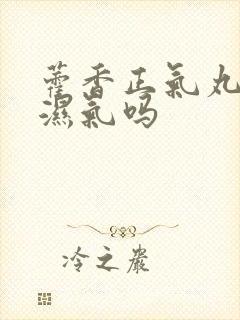 藿香正氣丸
濕氣吗
冷之嚴